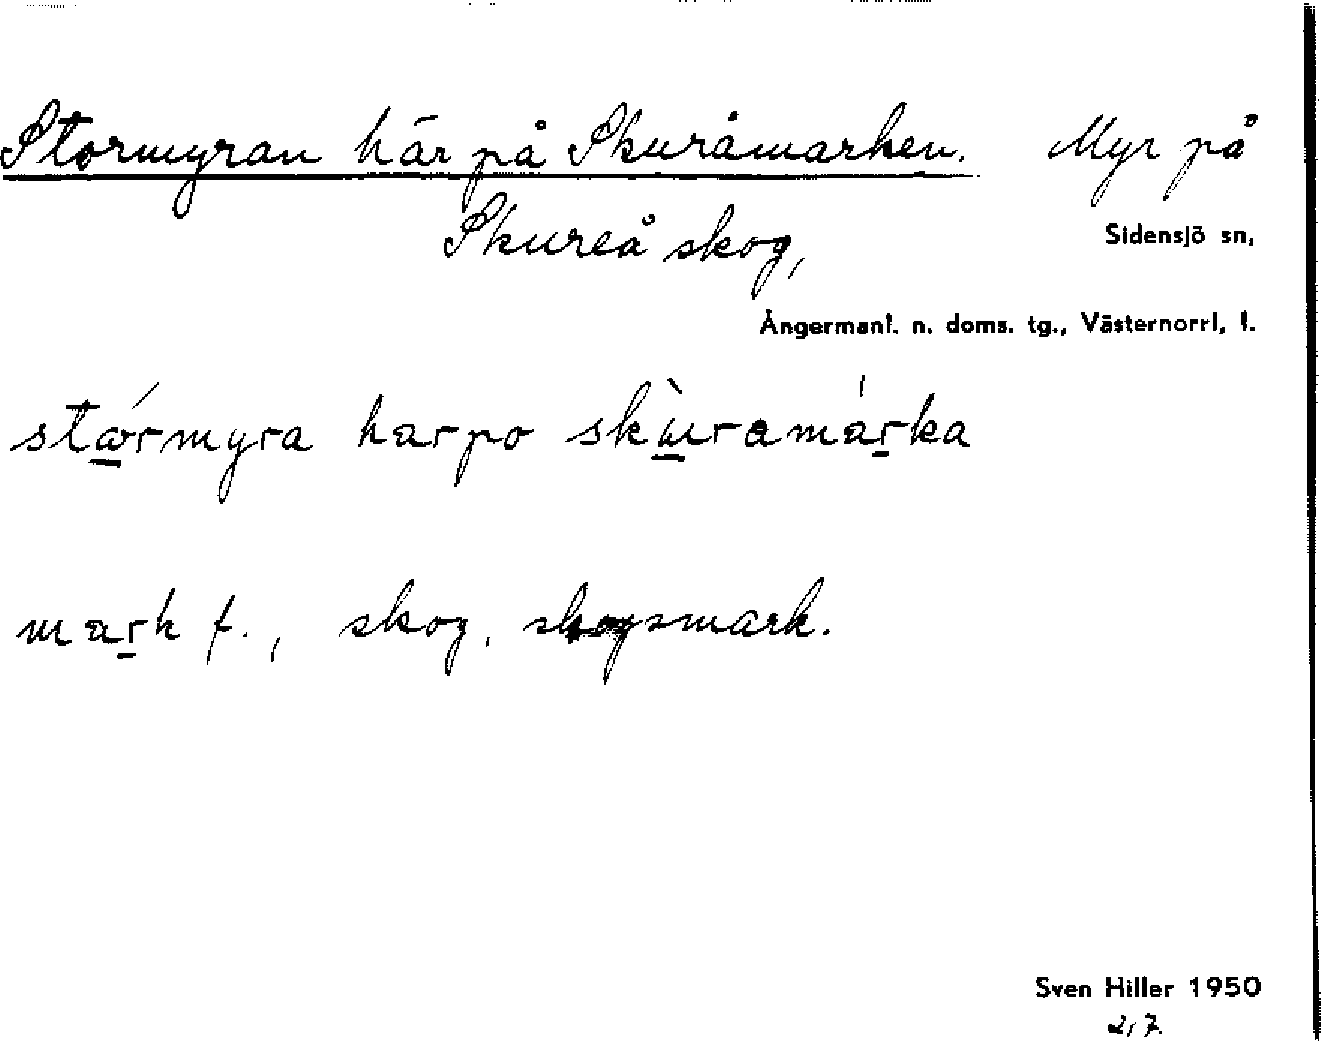 Stormyran här på Skuråmarken. Myr på
Skureå skog, Sidensjö sn,
Ångermanl. n. doms. tg., Västernorrl. l.
stœ́rmyra harpo skùramárka
mark f., skog, skogsmark.
Sven Hiller 1950
2/7.